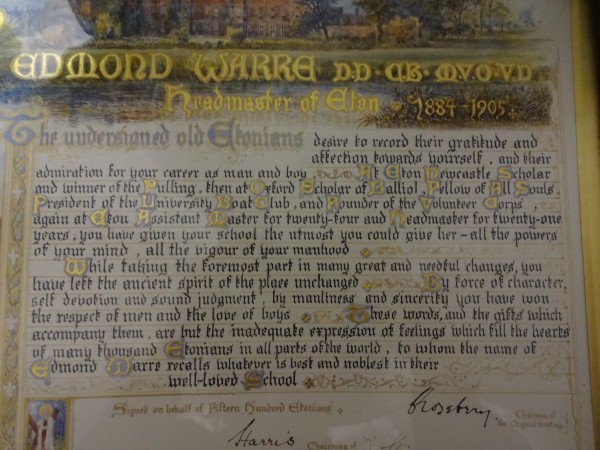 EDMOND WARRE D.D. C.B. M.V.O. V.D.
Headmaster of Eton 1884-1905.
The undersigned old Etonians desire to record their gratitude and
affection towards yourself, and their
admiration for your career as man and boy. At Eton Newcastle Scholar
and winner of the Pulling, then at Oxford Scholar of Balliol, Fellow of All Souls,
President of the University Boat Club, and Founder of the Volunteer Corps,
again at Eton Assistant Master for twenty-four and Headmaster for twenty-one
years, you have given your school the utmost you could give her - all the powers
of your mind, all the vigour of your manhood.
While taking the foremost part in many great and needful changes, you
have left the ancient spirit of the place unchanged. By force of character,
self devotion and sound judgment, by manliness and sincerity you have won
the respect of men and the love of boys. These words, and the gifts which
accompany them, are but the inadequate expression of feelings which fill the hearts
of many thousand Etonians in all parts of the world, to whom the name of
Edmond Warre recalls whatever is best and noblest in their
well-loved School.
Signed on behalf of Fifteen Hundred Etonians.
Rosebery. Chairman of
the Original meeting.
Harris Chairman of